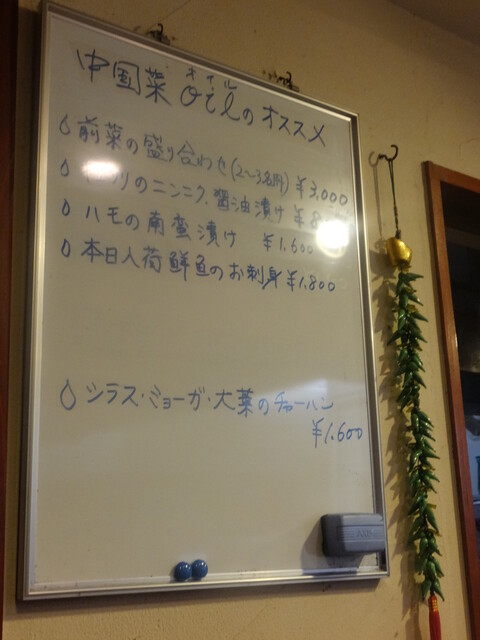 オイル
中国菜 oilのオススメ
前菜の盛り合わせ(2~3名用) ¥3,000
のニンニク、醤油漬け
ハモの南蛮漬け ¥1,600
本日入荷鮮魚のお刺身 ¥1,800
シラス・ミョーガ・大葉のチャーハン
¥1,600